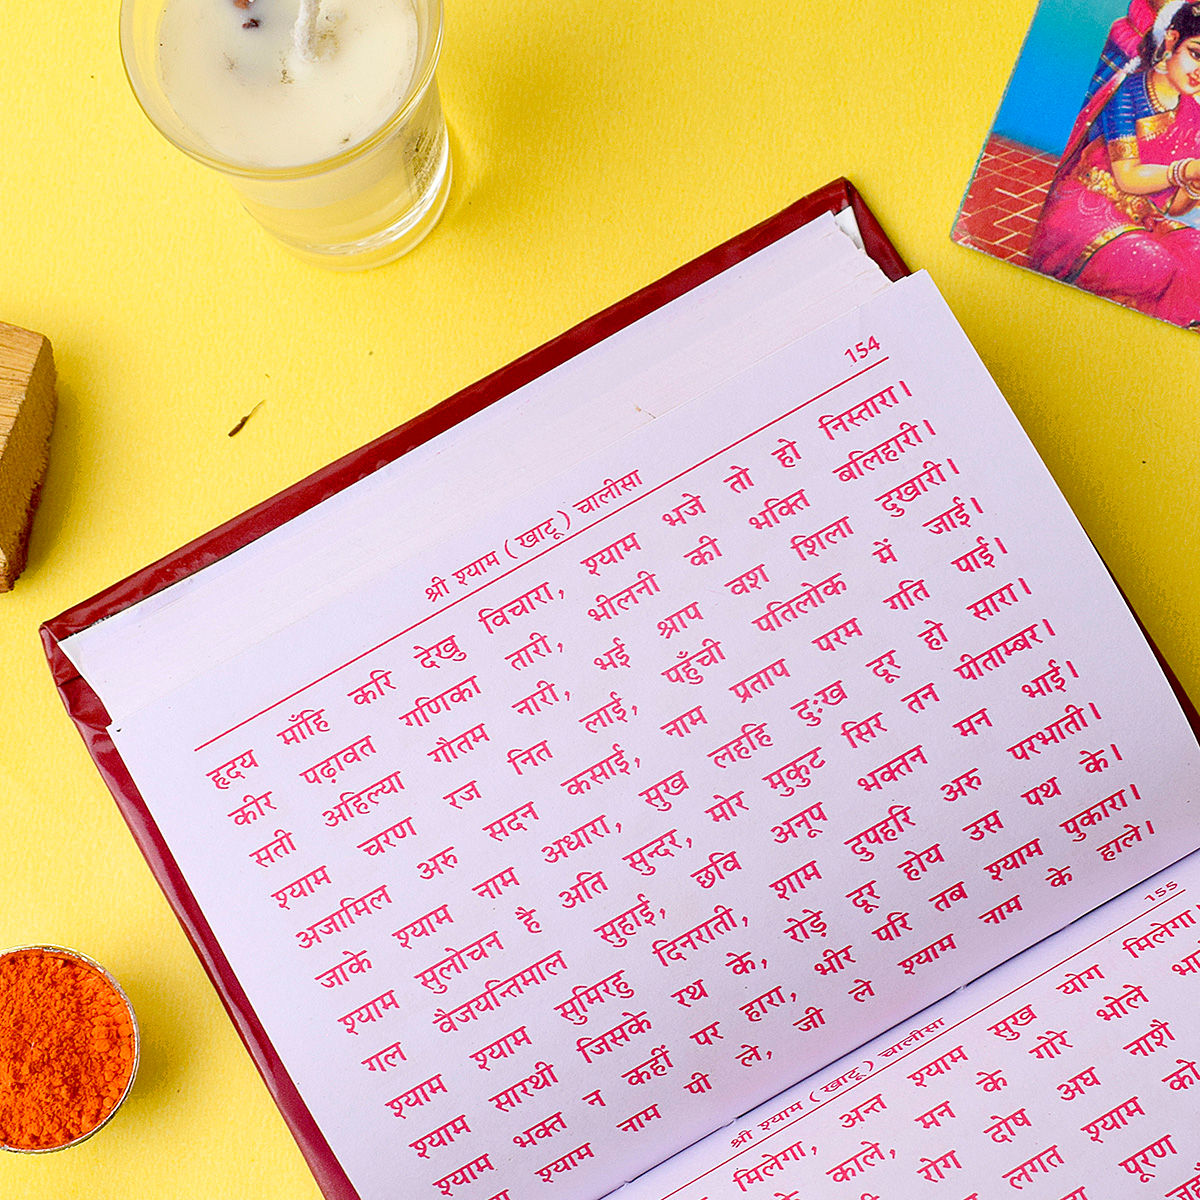 154
श्री श्याम ( खाटू ) चालीसा
हृदय माँहि करि देखु विचारा, श्याम भजे तो हो निस्तारा।
कीर पढ़ावत गणिका तारी, भीलनी की भक्ति बलिहारी।
सती अहिल्या गौतम नारी, भई श्राप वश शिला दुखारी।
श्याम चरण रज नित लाई, पहुँची पतिलोक में जाई।
अजामिल अरु सदन कसाई, नाम प्रताप परम गति पाई।
जाके श्याम नाम अधारा, सुख लहहि दुःख दूर हो सारा।
श्याम सुलोचन है अति सुन्दर, मोर मुकुट सिर तन पीताम्बर।
गल वैजयन्तिमाल सुहाई, छवि अनूप भक्तन मन भाई।
श्याम श्याम सुमिरहु दिनराती, शाम दुपहरि अरु परभाती।
श्याम सारथी जिसके रथ के, रोड़े दूर होय उस पथ के।
श्याम भक्त न कहीं पर हारा, भीर परि तब श्याम पुकारा।
श्याम नाम पी ले, जी ले श्याम नाम के हाले।
155
श्री श्याम ( खाटू ) चालीसा
श्याम सुख योग मिलेगा
मिलेगा, अन्त के गोरे भोले
काले, मन दोष अघ नाशै
रोग लगत श्याम को
पूरण